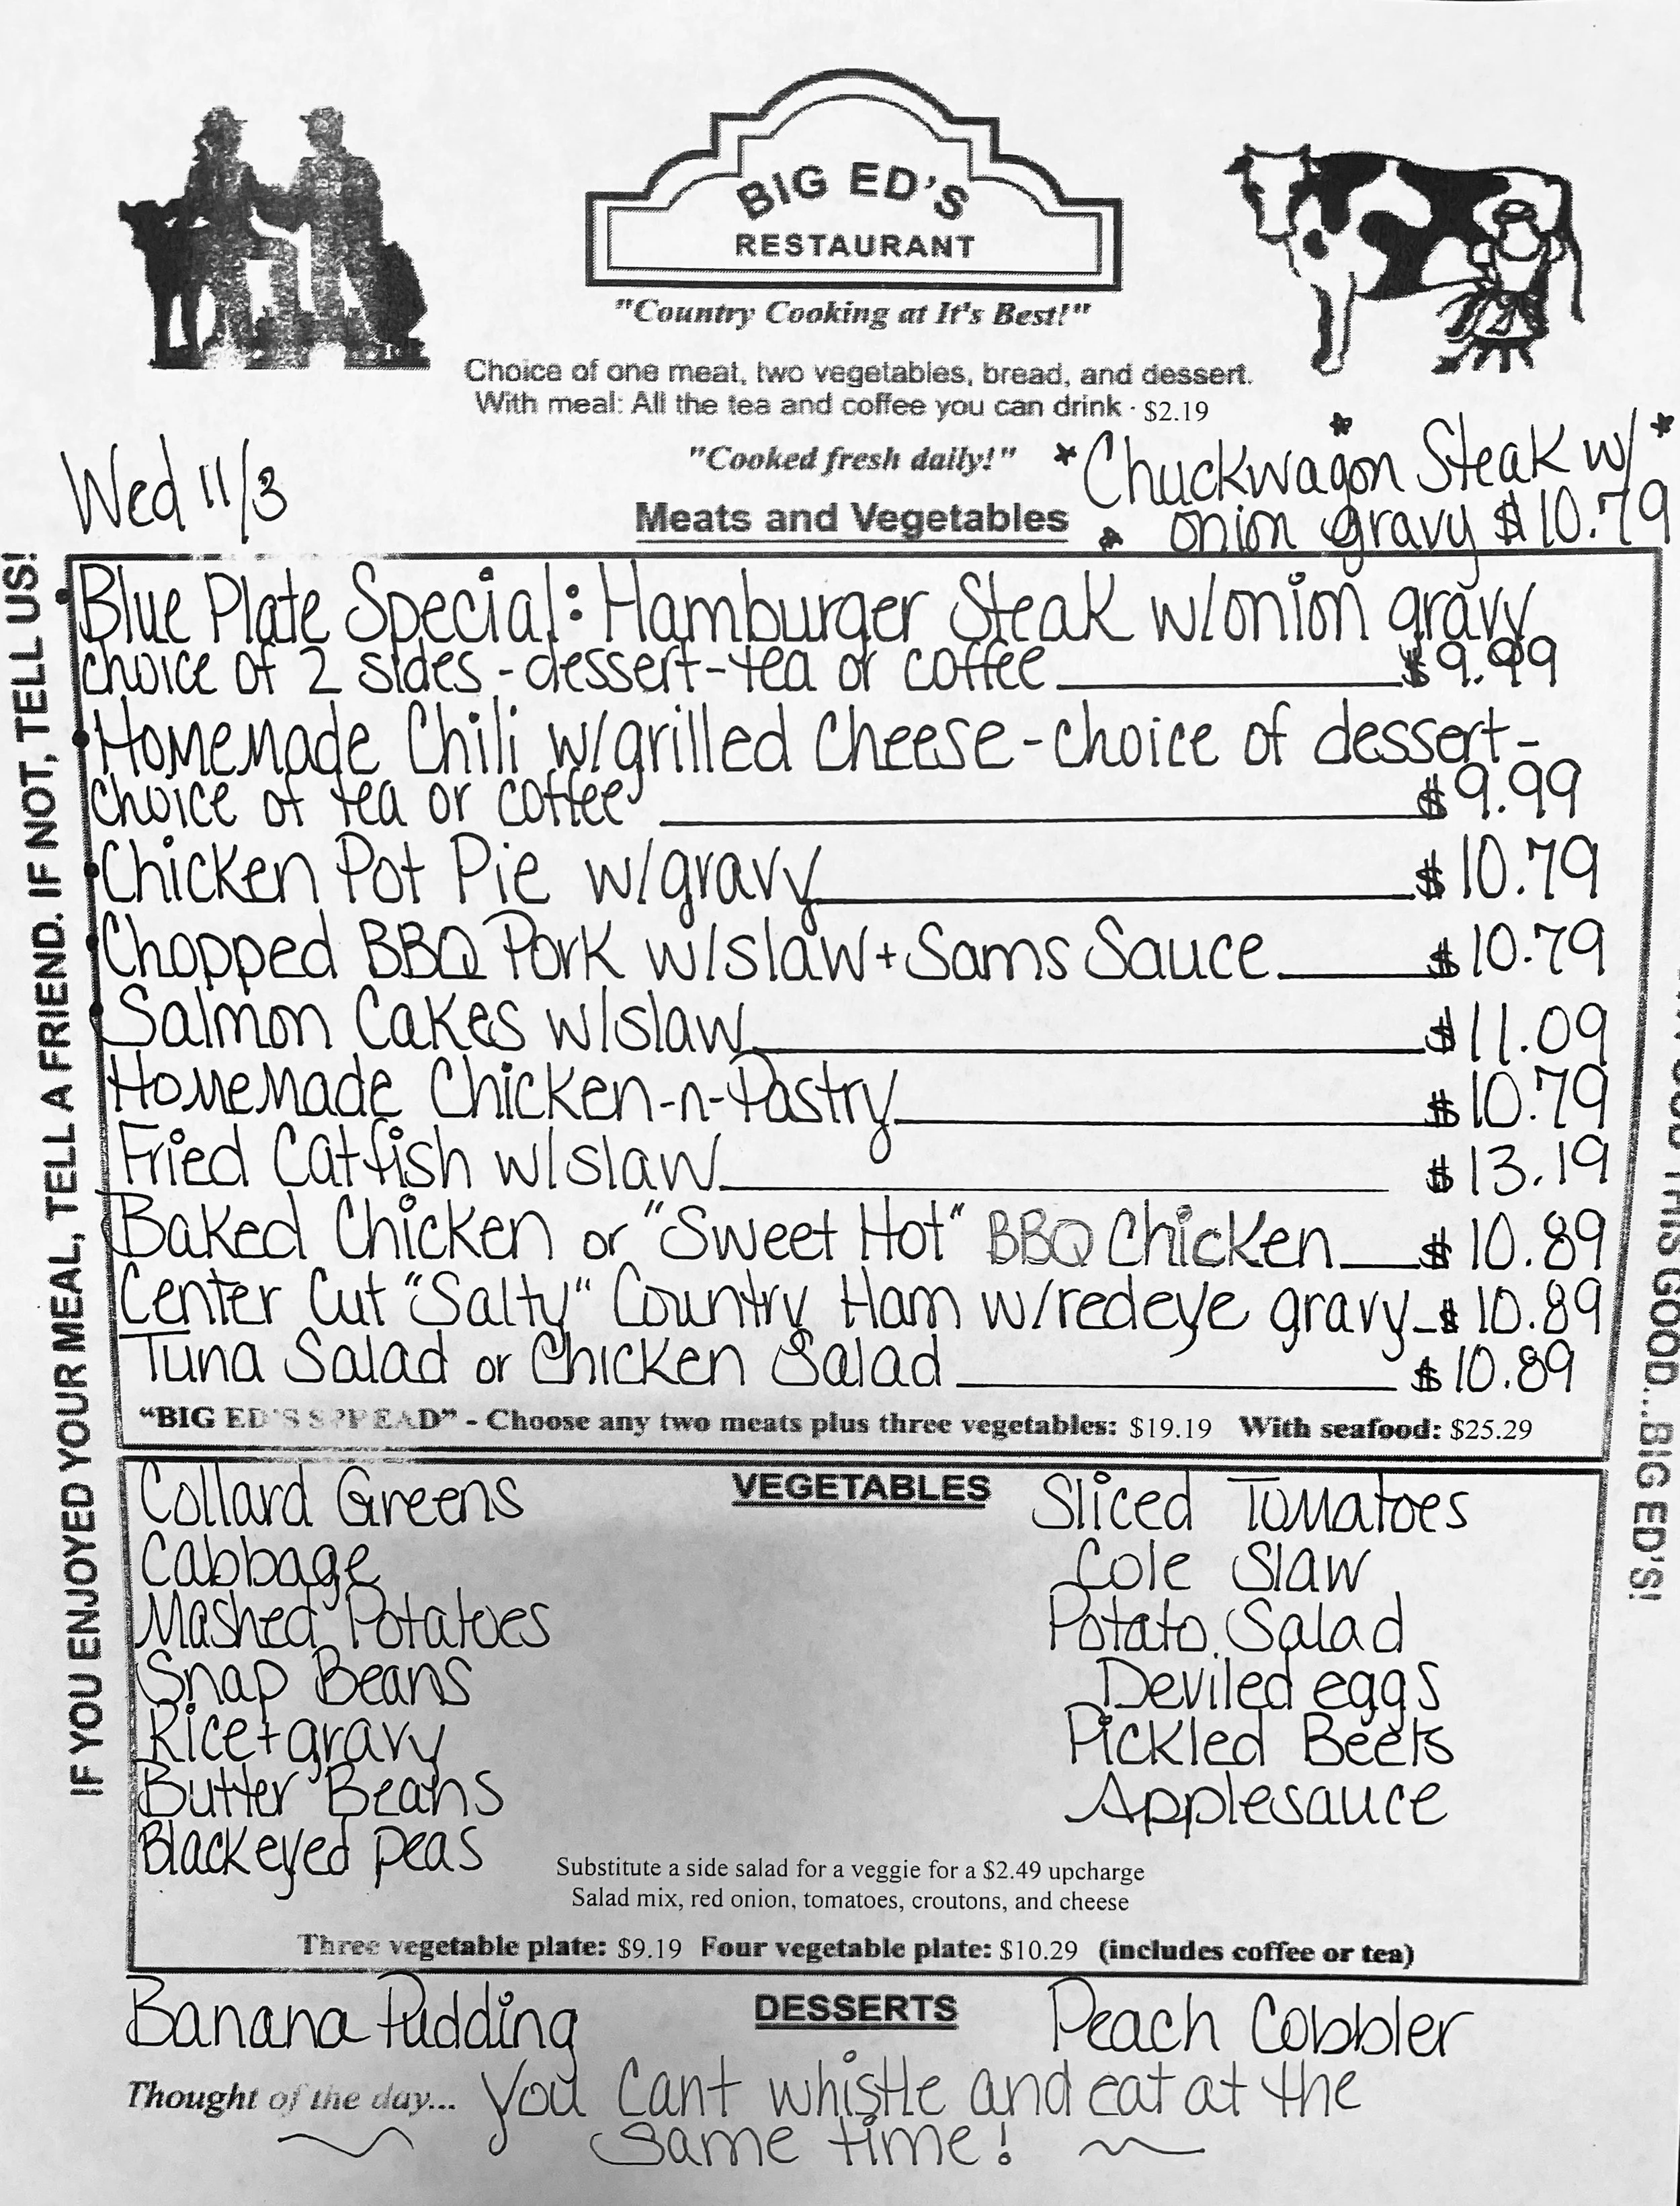 BIG ED'S
RESTAURANT
"Country Cooking at It's Best!"
Choice of one meat, two vegetables, bread, and dessert.
With meal: All the tea and coffee you can drink · $2.19
"Cooked fresh daily!"
Wed 11/3
* Chuckwagon Steak w/ *
* onion gravy $10.79
Meats and Vegetables
IF YOU ENJOYED YOUR MEAL, TELL A FRIEND. IF NOT, TELL US!
• Blue Plate Special: Hamburger Steak w/onion gravy
choice of 2 sides - dessert - tea or coffee $9.99
• Homemade Chili w/grilled cheese - choice of dessert -
choice of tea or coffee $9.99
• Chicken Pot Pie w/gravy $10.79
• Chopped BBQ Pork w/slaw + Sams Sauce $10.79
• Salmon Cakes w/slaw $11.09
Homemade Chicken-n-Pastry $10.79
Fried Catfish w/slaw $13.19
Baked Chicken or "Sweet Hot" BBQ Chicken $10.89
Center Cut "Salty" Country Ham w/redeye gravy $10.89
Tuna Salad or Chicken Salad $10.89
"BIG ED'S SPREAD" - Choose any two meats plus three vegetables: $19.19 With seafood: $25.29
THIS GOOD...BIG ED'S!
VEGETABLES
Collard Greens
Cabbage
Mashed Potatoes
Snap Beans
Rice + gravy
Butter Beans
Blackeyed peas
Sliced Tomatoes
Cole Slaw
Potato Salad
Deviled eggs
Pickled Beets
Applesauce
Substitute a side salad for a veggie for a $2.49 upcharge
Salad mix, red onion, tomatoes, croutons, and cheese
Three vegetable plate: $9.19 Four vegetable plate: $10.29 (includes coffee or tea)
DESSERTS
Banana Pudding
Peach Cobbler
Thought of the day... You cant whistle and eat at the
same time!